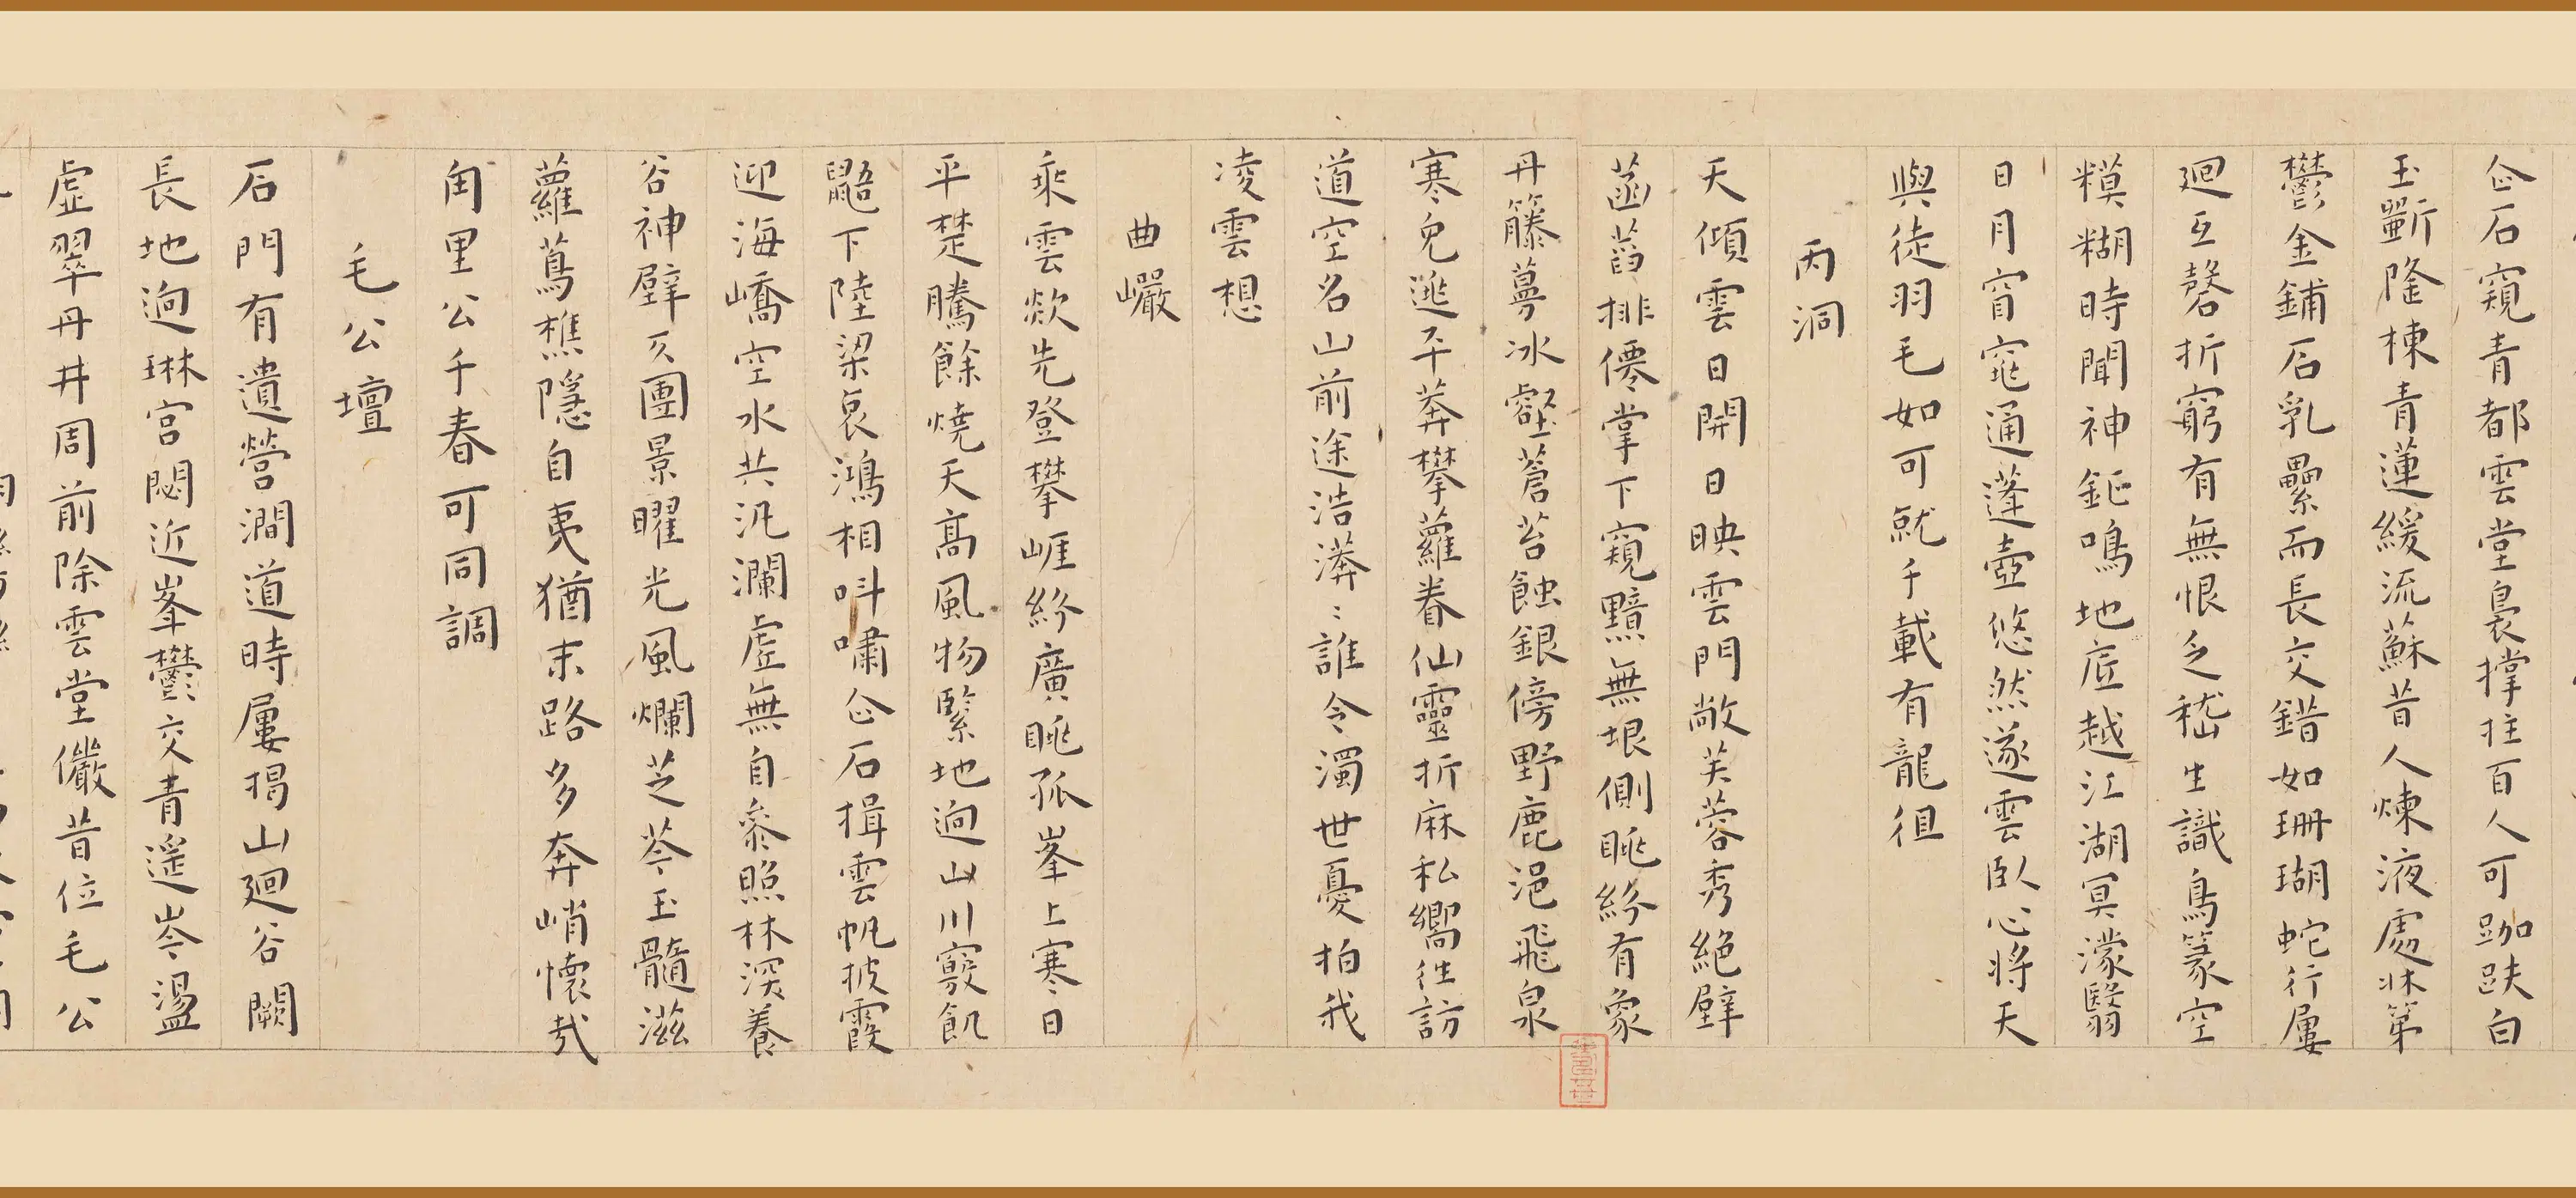 石窺青都雲堂裊撑拄百人可跏趺白
玉斵隆棟青蓮緩流蘇昔人煉液處牀第
鬱金鋪石乳纍而長交錯如珊瑚蛇行屢
廻互磬折窮有無恨乏嵇生識鳥篆空
糢糊時聞神鉦鳴地底越江湖冥濛翳
日月窅窊通蓬壺悠然遂雲臥心將天
與徒羽毛如可就千載有龍徂
丙洞
天傾雲日開日映雲門敞芙蓉秀絕壁
菡萏排僊掌下窺黯無垠側眺紛有象
丹籐蔓冰壑蒼苔蝕銀傍野鹿浥飛泉
寒兔逃平莽攀蘿眷仙靈折麻私嚮往訪
道空名山前途浩漭〻誰令濁世憂拍我
凌雲想
曲巖
乘雲欻先登攀崕紛廣眺孤峯上寒日
平楚騰餘燒天高風物緊地逈山川竅飢
鼯下陸梁哀鴻相叫嘯石揖雲帆披霞
迎海嶠空水共汎瀾虛無自叅照林深養
谷神壁仄團景曜光風爛芝苓玉髓滋
蘿蔦樵隱自夷猶末路多奔峭懷哉
甪里公千春可同調
毛公壇
石門有遺營澗道時屢揭山廻谷闕
長地逈琳宮閟近峯鬱交青遙岑盪
虛翠丹井周前除雲堂儼昔位毛公